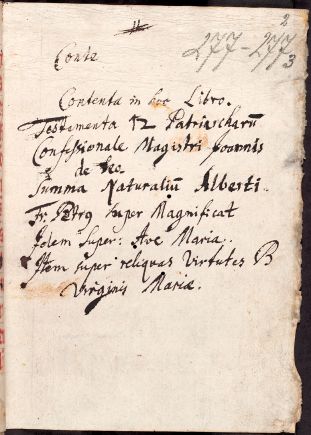 2
277-277
3
Conte
Contenta in hoc Libro.
Testamenta 12 Patriarcharū
Confessionale Magistri Joannis
de
Summa Naturaliū Alberti.
Fr: Petrq super Magnificat
Idem super: Ave Maria.
Item super reliquas Virtutes B
Virginis Mariæ.